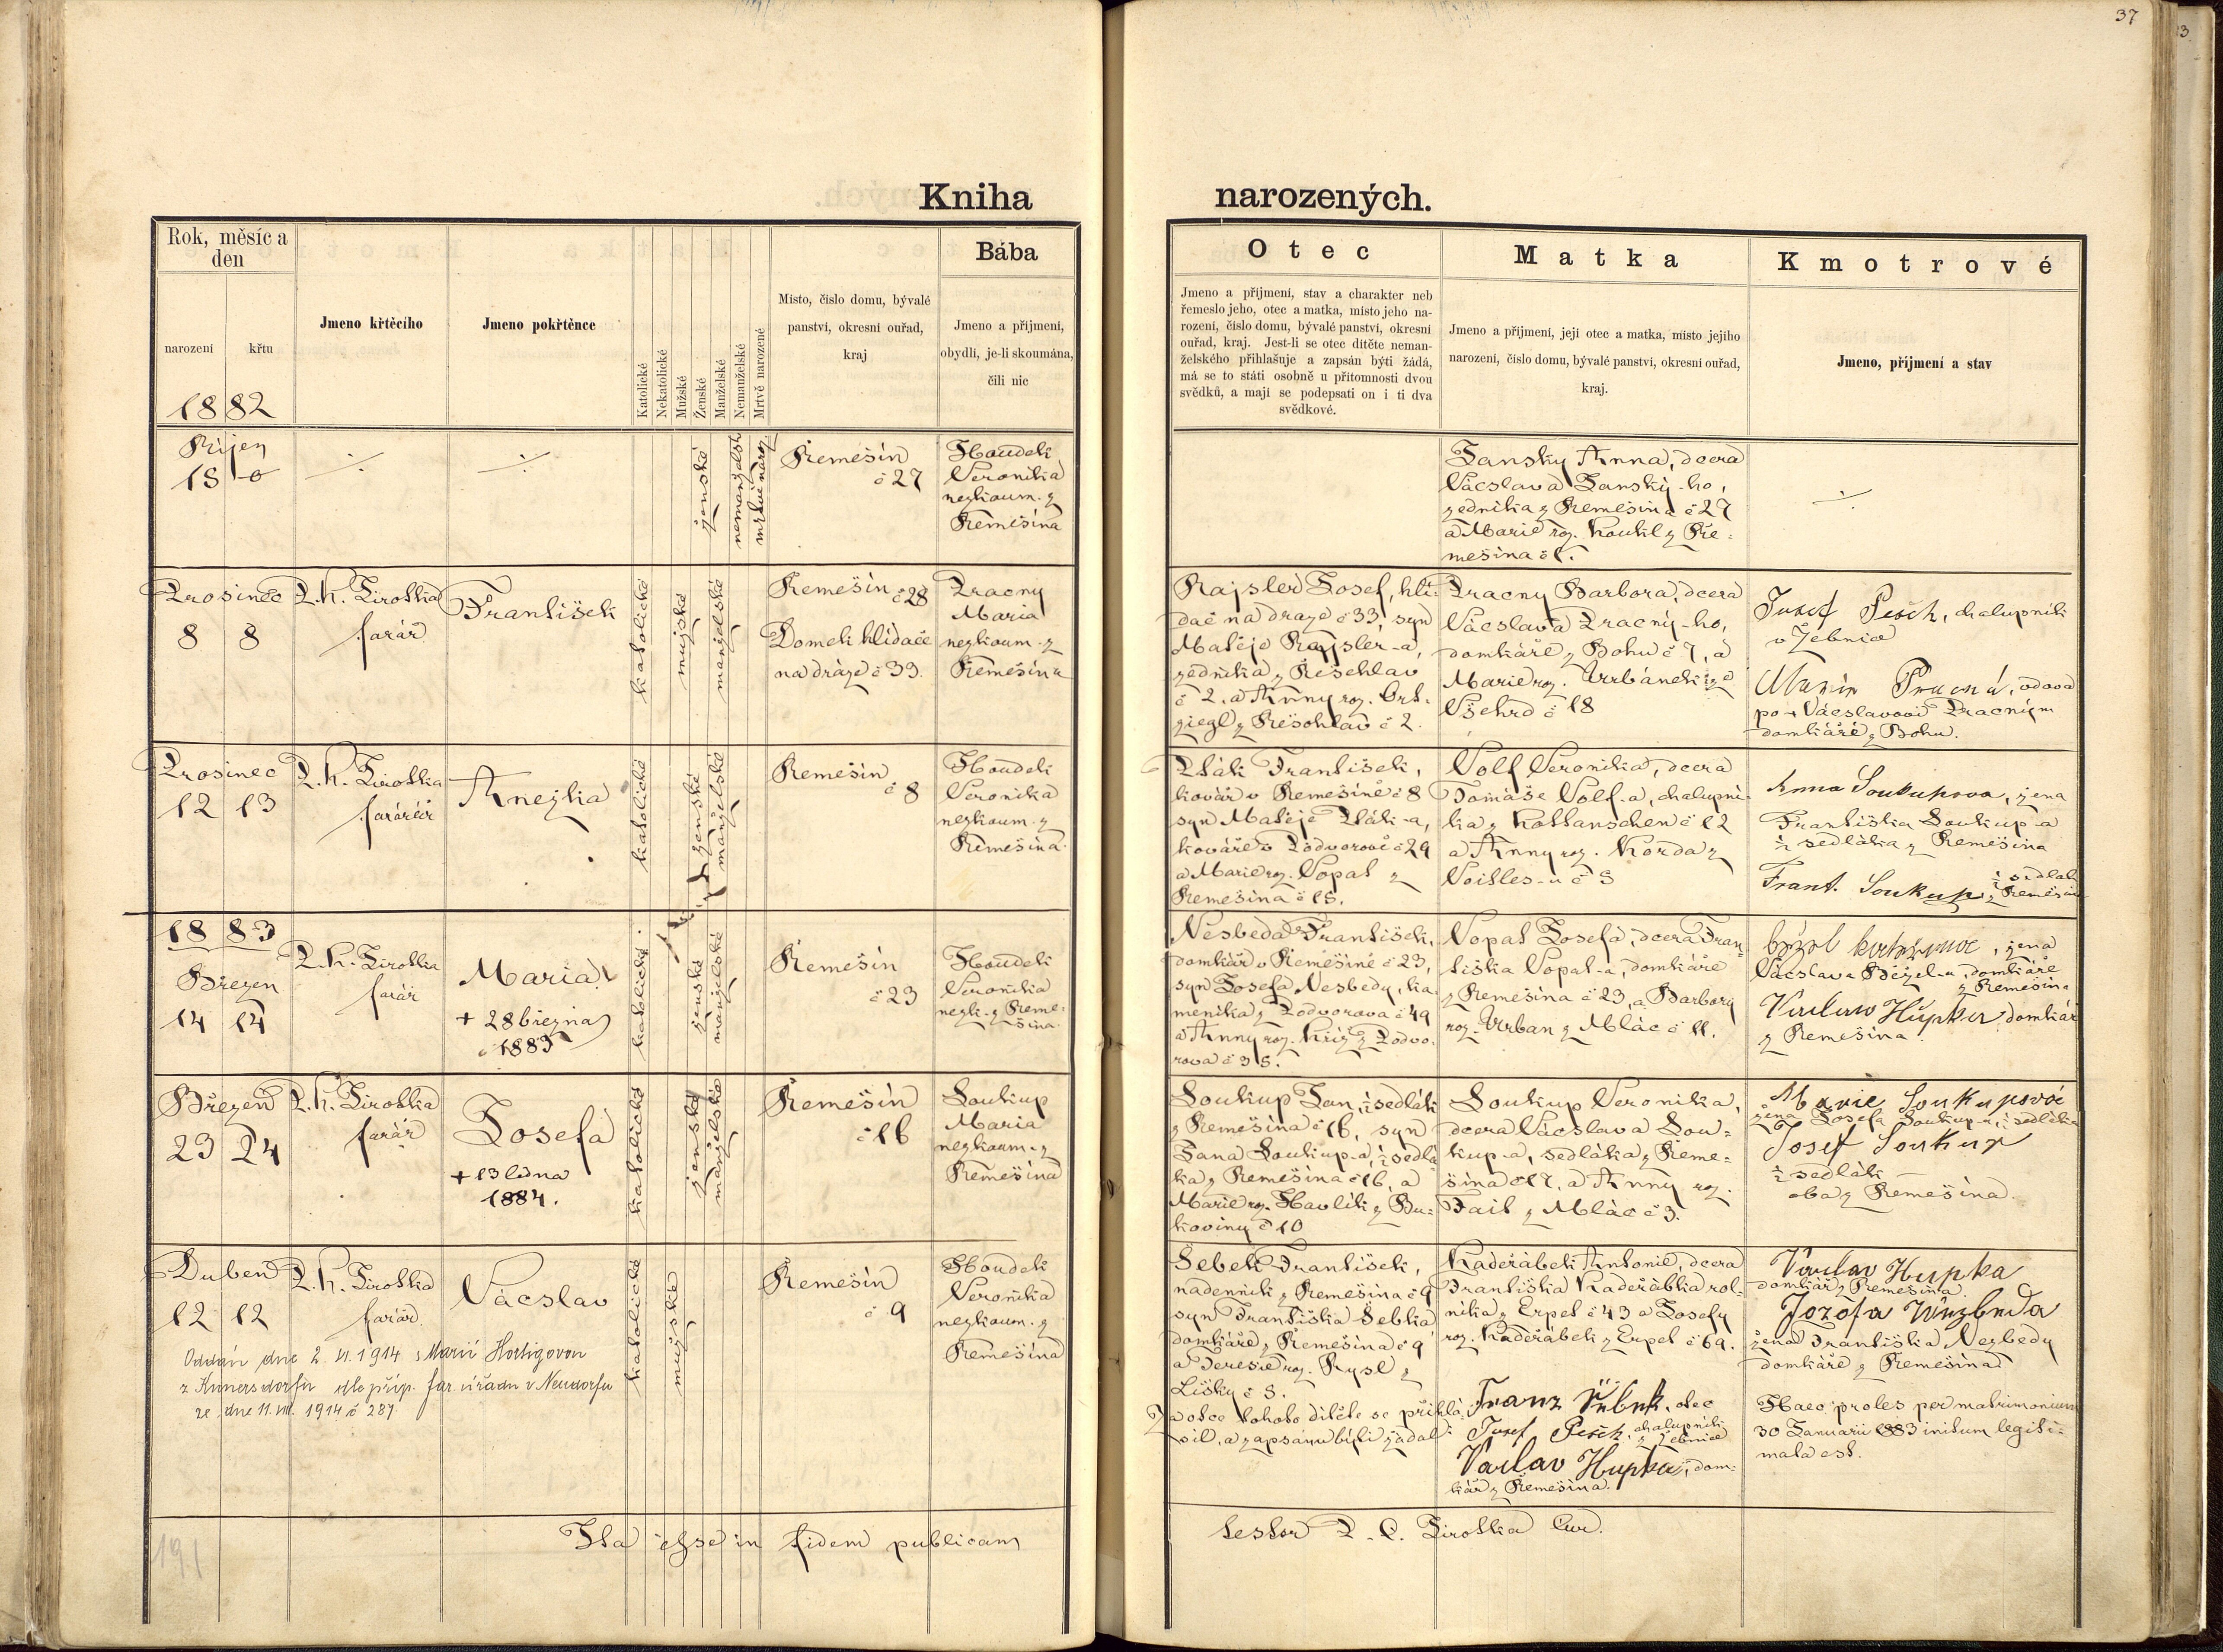 37
Kniha narozených.
Rok, měsíc a den
narození
křtu
1882
Jmeno křtěcího
Jmeno pokřtěnce
Katolické
Nekatolické
Mužské
Ženské
Manželské
Nemanželské
Mrtvě narozené
Místo, číslo domu, bývalé
panství, okresní ouřad,
kraj
Bába
Jmeno a příjmení,
obydlí, je-li skoumána,
čili nic
Otec
Jmeno a příjmení, stav a charakter neb
řemeslo jeho, otec a matka, místo jeho na-
rození, číslo domu, bývalé panství, okresní
ouřad, kraj. Jest-li se otec dítěte neman-
želského přihlašuje a zapsán býti žádá,
má se to státi osobně u přítomnosti dvou
svědků, a mají se podepsati on i ti dva
svědkové.
Matka
Jmeno a příjmení, její otec a matka, místo jejího
narození, číslo domu, bývalé panství, okresní ouřad,
kraj.
Kmotrové
Jmeno, příjmení a stav
Říjen
ženské
nemanželské
Řemešín
č 27
Houdek
Veronika
nezkoum. z
Řemešína
Janský Anna, dcera
Václava Janský-ho,
zedníka z Řemešína č 27
a Marie roz. Koukl z Ře-
mešína č 1.
Prosinec
8 8
P. K. Jirotka
farář
František
katolické
mužské
manželské
Řemešín č 28
Domek hlídače
na dráze č 33.
Pracny
Maria
nezkoum. z
Řemešína
Rajsler Josef, hlí-
dač na dráze č 33, syn
Matěje Rajsler-a,
zedníka z
č 2. a Anny roz.
č 2.
Pracny Barbora, dcera
Václava Pracný-ho,
domkáře z Bohu č 7, a
Marie roz. Vrbánek ze
Všehrd č 18
Josef Pešek, chalupník
v Žebnice
Marie Pracná, vdova
po + Václavovi Pracným
domkáře z Bohu.
Prosinec
12 13
P. K. Jirotka
Anežka
katolické
ženské
manželské
Řemešín
č 8
Houdek
Veronika
nezkoum. z
Řemešína.
František,
kovář v Řemešíně č 8
syn Matěje
kováře v Podvorově č 29
a Marie roz. Vopat z
Řemešína č 15.
Volf Veronika, dcera
Tomáše Volf-a, chalupní-
ka z č 12
a Anny roz. Korda z
Anna Soukupova, žena
Františka Soukup-a
½ sedláka z Řemešína
Frant. Soukup, ½ sedlák
z Řemešína
1883
Březen
14 14
P. K. Jirotka
farář
Maria
+ 28 března
1883
katolické
ženské
manželské
Řemešín
č 23
Houdek
Veronika
nezk. z Řeme-
šína
Nesbeda František,
domkář v Řemešíně č 23,
syn Josefa Nesbedy, ka-
meníka z Podvorova č 49
a Anny roz. Kříž z Podvo-
rova č 35.
Vopat Josefa, dcera Fran-
tiška Vopat-a, domkáře
z Řemešína č 23, a Barbory
roz. Urban z Mláz č 11.
žena
Václava Bezel-a, domkáře
z Řemešína
Václav Hupka domkář
z Řemešína
Březen
23 24
P. K. Jirotka
farář
Josefa
+ 13 ledna
1884.
katolické
ženské
manželské
Řemešín
č 16
Soukup
Maria
nezkoum. z
Řemešína
Soukup Jan, ½ sedlák
z Řemešína č 16, syn
Jana Soukup-a, ½ sedlá
ka z Řemešína č 16, a
Marie roz. Havlík z Bu-
koviny č 10
Soukup Veronika,
dcera Václava Sou-
kup-a, sedláka z Řeme-
šína č 17, a Anny roz.
Fait z Mláz č 3.
Marie Soukupová
žena Josefa Soukup-a, ½ sedláka
Josef Soukup
½ sedlák
oba z Řemešína.
Duben
12 12
P. K. Jirotka
farář
Václav
katolické
mužské
Řemešín
č 9
Houdek
Veronika
nezkoum. z
Řemešína
Oddán dne 2. VI. 1914 s Marií Hortigovou
z Kunersdorfu dle příp. far. úřadu v Neudorfu
ze dne 11. VII. 1914 č 287
Šebek František,
nádenník z Řemešína č 9
syn Františka Šebka
domkáře z Řemešína č 9
a Teresie roz. Rysl z
Lišky č 3.
Za otce tohoto dítěte se přihlá-
sil, a zapsánu býti žádal:
Kadeřábek Antonie, dcera
Františka Kadeřábka rol-
níka z Erpet č 43 a Josefy
roz. Kadeřábek z Erpet č 69.
Franz Šebek, otec
Josef Pešek, chalupník
z Žebnice
Václav Hupka, dom-
kář z Řemešína.
Václav Hupka
domkář z Řemešína
žena Františka Nezbedy
domkáře z Řemešína
Haec proles per matrimonium
30 Januarii 1883 initum legiti-
mata est.
Ita esse in fidem publicam
testor P. C. Jirotka Cur.